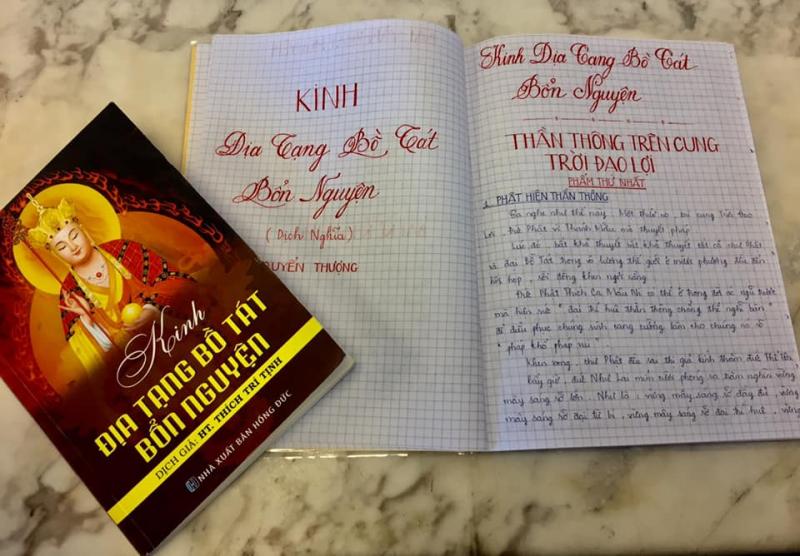 Kinh
ĐỊA TẠNG BỒ TÁT
BỔN NGUYỆN
DỊCH GIẢ: HT. THÍCH TRÍ TỊNH
NHÀ XUẤT BẢN HỒNG ĐỨC
KINH
Địa Tạng Bồ Tát
Bổn Nguyện
(Dịch Nghĩa)
QUYỂN THƯỢNG
Kinh Địa Tạng Bồ Tát
Bổn Nguyện
THẦN THÔNG TRÊN CUNG
TRỜI ĐẠO LỢI
PHẨM THỨ NHẤT
1. PHẬT HIỆN THẦN THÔNG
Ta nghe như thế này: Một thuở nọ, tại cung Trời Đao
Lợi, đức Phật vì Thánh Mẫu mà thuyết pháp.
Lúc đó, bất khả thuyết bất khả thuyết tất cả chư Phật
và đại Bồ Tát trong vô lượng thế giới ở mười phương đều đến
hội họp, rồi đồng khen ngợi rằng:
Đức Phật Thích Ca Mâu Ni có thể ở trong đời ác ngũ trược
mà hiện sức "đại trí huệ thần thông chẳng thể nghĩ bàn"
để điều phục chúng sinh cang cường làm cho chúng nó rõ
"pháp khổ pháp vui".
Khen xong, chư Phật đều sai thị giả kính thăm đức Thế Tôn.
Bấy giờ, đức Như Lai mỉm cười phóng ra trăm nghìn vừng
mây sáng rỡ lớn. Như là: vừng mây sáng rỡ đầy đủ, vừng
mây sáng rỡ đại từ bi, vừng mây sáng rỡ đại trí huệ, vừng